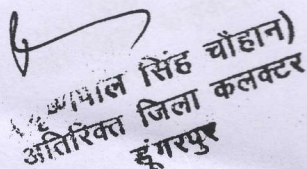 सिंह चौहान)
अतिरिक्त जिला कलक्टर
डूंगरपुर